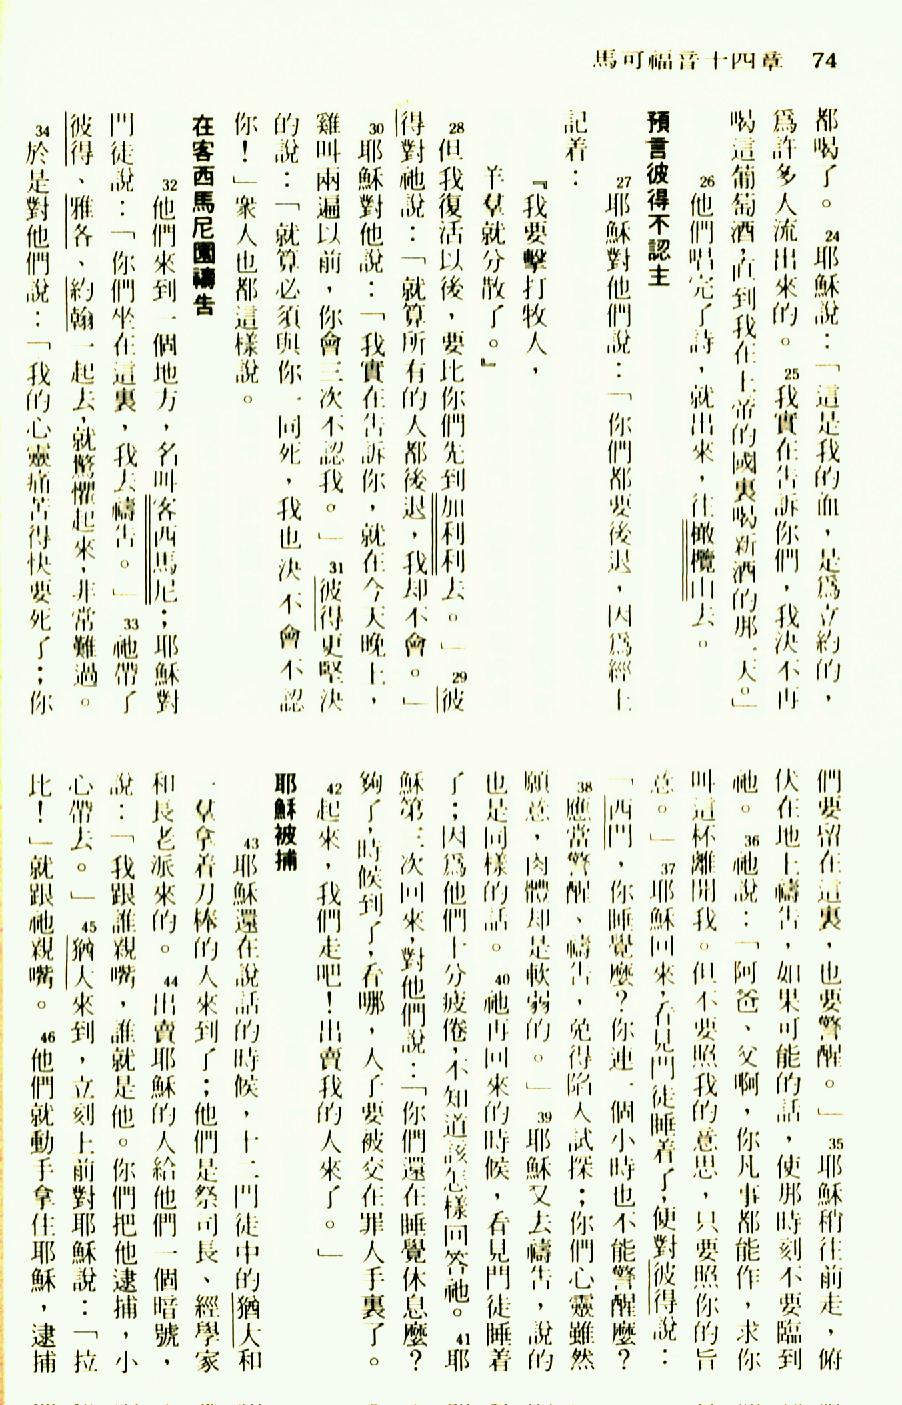 馬可福音十四章 74
都喝了。24耶穌說：「這是我的血，是爲立約的，
爲許多人流出來的。25我實在告訴你們，我決不再
喝這葡萄酒，直到我在上帝的國裏喝新酒的那一天。」
26他們唱完了詩，就出來，往橄欖山去。
預言彼得不認主
27耶穌對他們說：「你們都要後退，因爲經上
記着：
『我要擊打牧人，
羊羣就分散了。』
28但我復活以後，要比你們先到加利利去。」29彼
得對祂說：「就算所有的人都後退，我却不會。」
30耶穌對他說：「我實在告訴你，就在今天晚上，
雞叫兩遍以前，你會三次不認我。」31彼得更堅決
的說：「就算必須與你一同死，我也決不會不認
你！」衆人也都這樣說。
在客西馬尼園禱告
32他們來到一個地方，名叫客西馬尼；耶穌對
門徒說：「你們坐在這裏，我去禱告。」33祂帶了
彼得、雅各、約翰一起去，就驚懼起來，非常難過。
34於是對他們說：「我的心靈痛苦得快要死了；你
們要留在這裏，也要警醒。」35耶穌稍往前走，俯
伏在地上禱告，如果可能的話，使那時刻不要臨到
祂。36祂說：「阿爸、父啊，你凡事都能作，求你
叫這杯離開我。但不要照我的意思，只要照你的旨
意。」37耶穌回來，看見門徒睡着了，便對彼得說：
「西門，你睡覺麼？你連一個小時也不能警醒麼？
38應當警醒、禱告，免得陷入試探；你們心靈雖然
願意，肉體却是軟弱的。」39耶穌又去禱告，說的
也是同樣的話。40祂再回來的時候，看見門徒睡着
了；因爲他們十分疲倦，不知道該怎樣回答祂。41耶
穌第三次回來，對他們說：「你們還在睡覺休息麼？
夠了，時候到了，看哪，人子要被交在罪人手裏了。
42起來，我們走吧！出賣我的人來了。」
耶穌被捕
43耶穌還在說話的時候，十二門徒中的猶大和
一羣拿着刀棒的人來到了；他們是祭司長、經學家
和長老派來的。44出賣耶穌的人給他們一個暗號，
說：「我跟誰親嘴，誰就是他。你們把他逮捕，小
心帶去。」45猶大來到，立刻上前對耶穌說：「拉
比！」就跟祂親嘴。46他們就動手拿住耶穌，逮捕